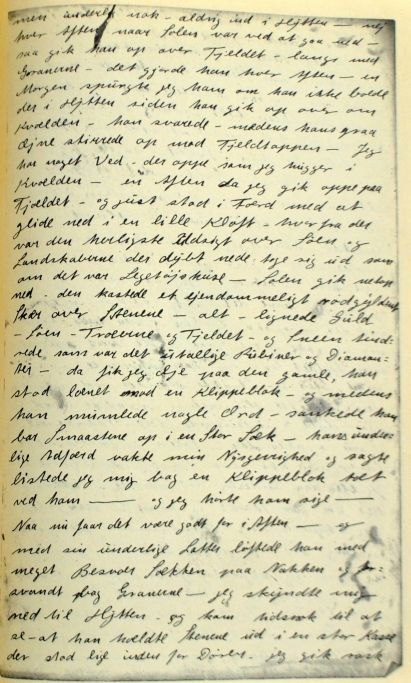 men underlig nok - aldrig ind i Hytten - nej
hver Aften naar Solen var ved at gaa ned -
saa gik han op over Fjeldet - langs med
Granerne - det gjorde han hver Aften - en
Morgen spurgte jeg ham om han ikke boede
der i Hytten siden han gik op over om
Kvælden - han svarede - medens hans graa
Øjne stirrede op mod Fjeldtoppen - Jeg
har noget Ved - der oppe som jeg hugger i
Kvælden - en Aften da jeg gik oppe paa
Fjældet - og just stod i Færd med at
glide ned i en lille Kløft - hvorfra der
var den herligste Uddsigt over Søen og
Landskaberne der dybt nede tog sig ud som
om det var Legetøjshuse - Solen gik netop
ned - den kastede et ejendommeligt rødgyldent
Skær over Stenene - alt - lignede Guld
- Søen - Træerne og Fjeldet - og Sneen tind-
rede som var det utallige Rubiner og Diaman-
ter - da fik jeg Øje paa den gamle, han
stod lænet mod en Klippeblok - og medens
han mumlede nogle Ord - sankede han
bar Smaastene op i en Stor Sæk - hans under-
lige Adfærd vakte min Nysgerrighed og sagte
listede jeg mig bag en Klippeblok tæt
ved ham - og jeg hørte ham sige -
Naa nu faar det være godt for i Aften - og
med sin underlige Latter løftede han med
meget Besvær Sækken paa Nakken og for-
svandt bag Granerne - jeg skyndte mig
ned til Hytten - og kom tidsnok til at
se - at han hældte Stenene ud i en stor Kasse
der stod lige inden for Døren - jeg gik rask